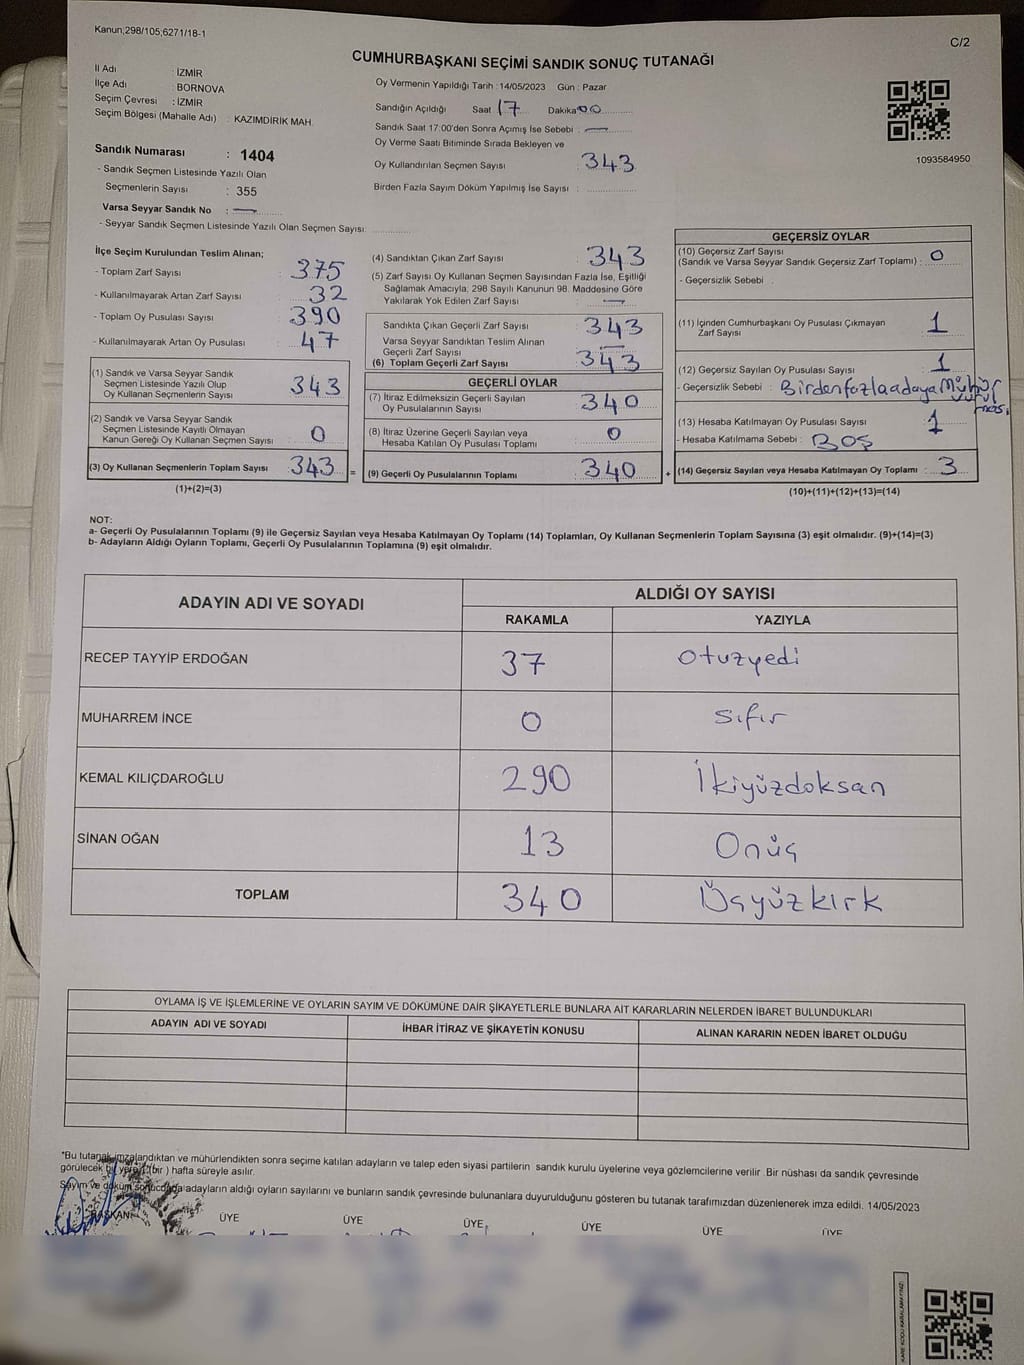 Kanun;298/105;6271/18-1
C/2
CUMHURBAŞKANI SEÇİMİ SANDIK SONUÇ TUTANAĞI
İl Adı : İZMİR
İlçe Adı : BORNOVA
Seçim Çevresi : İZMİR
Seçim Bölgesi (Mahalle Adı) : KAZIMDİRİK MAH.
Sandık Numarası : 1404
- Sandık Seçmen Listesinde Yazılı Olan
Seçmenlerin Sayısı : 355
Varsa Seyyar Sandık No : —
- Seyyar Sandık Seçmen Listesinde Yazılı Olan Seçmen Sayısı:
Oy Vermenin Yapıldığı Tarih : 14/05/2023 Gün : Pazar
Sandığın Açıldığı Saat 17 Dakika 00
Sandık Saat 17:00'den Sonra Açımış İse Sebebi : —
Oy Verme Saati Bitiminde Sırada Bekleyen ve
Oy Kullandırılan Seçmen Sayısı : 343
Birden Fazla Sayım Döküm Yapılmış İse Sayısı :
1093584950
İlçe Seçim Kurulundan Teslim Alınan;
- Toplam Zarf Sayısı : 375
- Kullanılmayarak Artan Zarf Sayısı : 32
- Toplam Oy Pusulası Sayısı : 390
- Kullanılmayarak Artan Oy Pusulası : 47
(1) Sandık ve Varsa Seyyar Sandık
Seçmen Listesinde Yazılı Olup
Oy Kullanan Seçmenlerin Sayısı : 343
(2) Sandık ve Varsa Seyyar Sandık
Seçmen Listesinde Kayıtlı Olmayan
Kanun Gereği Oy Kullanan Seçmen Sayısı : 0
(3) Oy Kullanan Seçmenlerin Toplam Sayısı : 343 =
(1)+(2)=(3)
(4) Sandıktan Çıkan Zarf Sayısı : 343
(5) Zarf Sayısı Oy Kullanan Seçmen Sayısından Fazla İse, Eşitliği
Sağlamak Amacıyla, 298 Sayılı Kanunun 98. Maddesine Göre
Yakılarak Yok Edilen Zarf Sayısı : —
Sandıkta Çıkan Geçerli Zarf Sayısı : 343
Varsa Seyyar Sandıktan Teslim Alınan
Geçerli Zarf Sayısı : —
(6) Toplam Geçerli Zarf Sayısı : 343
GEÇERLİ OYLAR
(7) İtiraz Edilmeksizin Geçerli Sayılan
Oy Pusulalarının Sayısı : 340
(8) İtiraz Üzerine Geçerli Sayılan veya
Hesaba Katılan Oy Pusulası Toplamı : 0
(9) Geçerli Oy Pusulalarının Toplamı : 340 +
GEÇERSİZ OYLAR
(10) Geçersiz Zarf Sayısı
(Sandık ve Varsa Seyyar Sandık Geçersiz Zarf Toplamı) : 0
- Geçersizlik Sebebi :
(11) İçinden Cumhurbaşkanı Oy Pusulası Çıkmayan
Zarf Sayısı : 1
(12) Geçersiz Sayılan Oy Pusulası Sayısı : 1
- Geçersizlik Sebebi : Birdenfazlaadaya Mühür
(13) Hesaba Katılmayan Oy Pusulası Sayısı : 1
- Hesaba Katılmama Sebebi : BOŞ
(14) Geçersiz Sayılan veya Hesaba Katılmayan Oy Toplamı : 3
(10)+(11)+(12)+(13)=(14)
NOT:
a- Geçerli Oy Pusulalarının Toplamı (9) ile Geçersiz Sayılan veya Hesaba Katılmayan Oy Toplamı (14) Toplamları, Oy Kullanan Seçmenlerin Toplam Sayısına (3) eşit olmalıdır. (9)+(14)=(3)
b- Adayların Aldığı Oyların Toplamı, Geçerli Oy Pusulalarının Toplamına (9) eşit olmalıdır.
ADAYIN ADI VE SOYADI ALDIĞI OY SAYISI
RAKAMLA YAZIYLA
RECEP TAYYİP ERDOĞAN 37 otuzyedi
MUHARREM İNCE 0 sıfır
KEMAL KILIÇDAROĞLU 290 İkiyüzdoksan
SİNAN OĞAN 13 Onüç
TOPLAM 340 Üçyüzkırk
OYLAMA İŞ VE İŞLEMLERİNE VE OYLARIN SAYIM VE DÖKÜMÜNE DAİR ŞİKAYETLERLE BUNLARA AİT KARARLARIN NELERDEN İBARET BULUNDUKLARI
ADAYIN ADI VE SOYADI İHBAR İTİRAZ VE ŞİKAYETİN KONUSU ALINAN KARARIN NEDEN İBARET OLDUĞU
*Bu tutanak imzalandıktan ve mühürlendikten sonra seçime katılan adayların ve talep eden siyasi partilerin sandık kurulu üyelerine veya gözlemcilerine verilir. Bir nüshası da sandık çevresinde
görülecek bir yere 1 (bir ) hafta süreyle asılır.
Sayım ve döküm sonucunda adayların aldığı oyların sayılarını ve bunların sandık çevresinde bulunanlara duyurulduğunu gösteren bu tutanak tarafımızdan düzenlenerek imza edildi. 14/05/2023
BAŞKAN ÜYE ÜYE ÜYE ÜYE ÜYE ÜYE